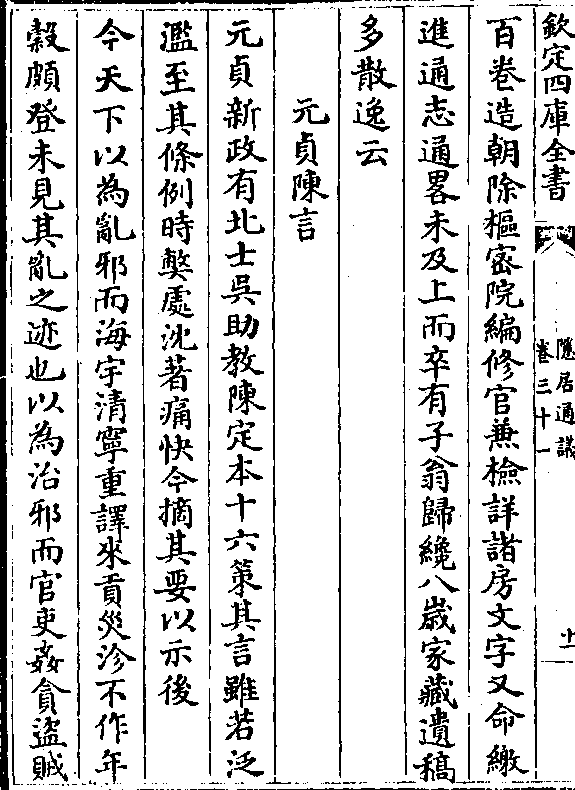 欽定四庫全書
隱居通議
卷三十一
十一
百卷造朝除樞宻院編修官兼檢詳諸房文字又命繳
進通志通畧未及上而卒有子翁歸纔八歲家藏遺稿
多散逸云
元貞陳言
元貞新政有北士吳助教陳定本十六䇿其言雖若泛
濫至其條例時弊處沈著痛快今摘其要以示後
今天下以為亂邪而海宇清寧重譯來貢災沴不作年
榖頗登未見其亂之迹也以為治邪而官吏姦貪盜賊